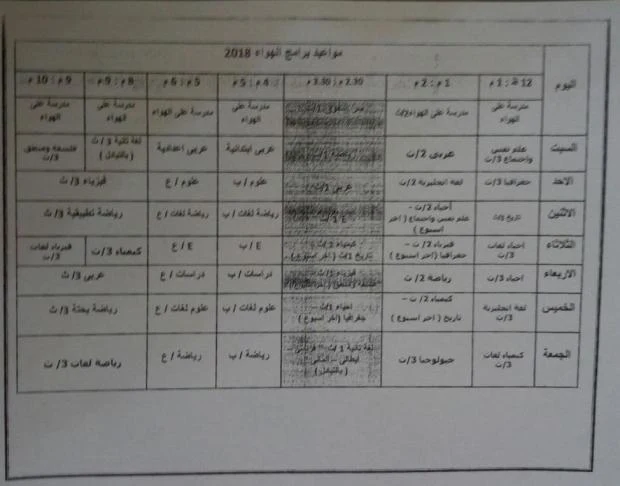 مواعيد برامج الهواء 2018
اليوم
12 ظ : 1 م
1 م : 2 م
2.30 م : 3.30 م
4 م : 5 م
5 م : 6 م
8 م : 9 م
9 م : 10 م
مدرسة على الهواء
مدرسة على الهواء 2/ث
مدرسة على الهواء
مدرسة على الهواء
مدرسة على الهواء
مدرسة على الهواء
السبت
علم نفس واجتماع 3/ث
عربى 2/ث
عربى ابتدائية
عربى اعدادية
لغة ثانية 3/ ث ( بالتبادل )
فلسفة ومنطق 3/ث
الاحد
جغرافيا 3/ث
لغة انجليزية 2/ث
عربى 1/ث
علوم / ب
علوم / ع
فيزياء 3/ ث
الاثنين
تاريخ 3/ث
أحياء 2/ ث – علم نفس واجتماع ( اخر اسبوع )
E 1/ ث
رياضة لغات / ب
رياضة لغات / ع
رياضة تطبيقية 3/ ث
الثلاثاء
احياء لغات 3/ث
فيزياء 2/ ث – جغرافيا ( اخر اسبوع )
كيمياء 1/ ث – تاريخ 1/ث ( اخر اسبوع )
E / ب
E / ع
كيمياء 3/ ث
فيزياء لغات 3/ث
الاربعاء
احياء 3/ث
رياضة 2/ ث
فيزياء 1/ث
دراسات / ب
دراسات / ع
عربى 3/ ث
الخميس
لغة انجليزية 3/ث
كيمياء 2/ ث – تاريخ ( اخر اسبوع )
احياء 1/ث – جغرافيا ( اخر اسبوع )
علوم لغات / ب
علوم لغات / ع
رياضة بحتة 3/ ث
الجمعة
كيمياء لغات 3/ث
جيولوجيا 3/ث
لغة ثانية 1/ ث – فرنسى – ايطالى – المانى ( بالتبادل )
رياضة / ب
رياضة / ع
رياضة لغات 3/ ث